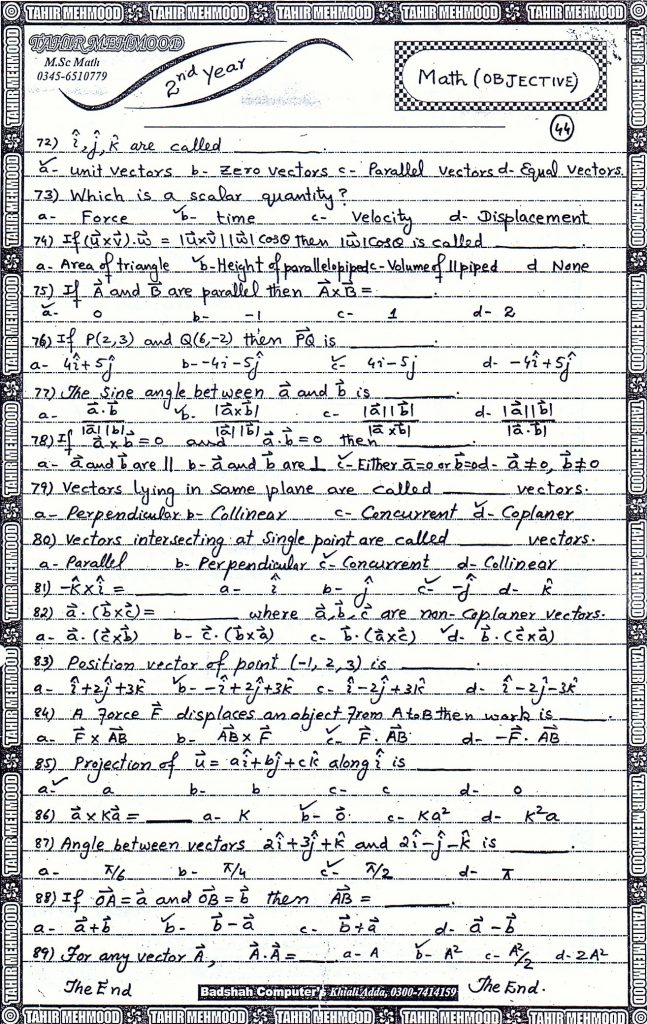 TAHIR MEHMOOD TAHIR MEHMOOD TAHIR MEHMOOD TAHIR MEHMOOD TAHIR MEHMOOD
TAHIR MEHMOOD
M.Sc Math
0345-6510779
2nd Year
Math (OBJECTIVE)
44
72) î, ĵ, k̂ are called ________.
✓a- unit vectors b- Zero vectors c- Parallel vectors d- Equal vectors.
73) Which is a scalar quantity?
a- Force ✓b- time c- Velocity d- Displacement
74) If (u⃗×v⃗).w⃗ = |u⃗×v⃗||w⃗|cosθ then |w⃗|cosθ is called ________.
a- Area of triangle ✓b- Height of parallelopiped c- Volume of ||piped d None
75) If A⃗ and B⃗ are parallel then A⃗×B⃗ = ______.
✓a- 0 b- -1 c- 1 d- 2
76) If P(2,3) and Q(6,-2) then PQ⃗ is ______.
a- 4î+5ĵ b- -4i-5ĵ ✓c- 4i-5j d- -4î+5ĵ
77) The Sine angle between a⃗ and b⃗ is ______.
a- a⃗.b⃗/|a||b| ✓b- |a⃗×b|/|a||b| c- |a⃗||b⃗|/|a⃗×b| d- |a⃗||b⃗|/|a⃗.b|
78) If a⃗×b⃗=0 and a⃗.b⃗=0 then ______
a- a⃗ and b⃗ are || b- a⃗ and b⃗ are ⊥ ✓c- Either a⃗=0 or b⃗=0 d- a⃗≠0, b⃗≠0
79) Vectors lying in same plane are called ______ vectors.
a- Perpendicular b- Collinear c- Concurrent ✓d- Coplaner
80) Vectors intersecting at single point are called ______ vectors.
a- Parallel b- Perpendicular ✓c- Concurrent d- Collinear
81) -k̂×î = ______ a- î b- ĵ ✓c- -ĵ d- k̂
82) a⃗.(b⃗×c⃗)= ________ where a⃗,b⃗,c⃗ are non-Coplaner vectors.
a- a⃗.(c⃗×b⃗) b- c⃗.(b⃗×a⃗) c- b⃗.(a⃗×c⃗) ✓d- b⃗.(c⃗×a⃗)
83) Position vector of point (-1, 2, 3) is ________.
a- î+2ĵ+3k̂ ✓b- -î+2ĵ+3k̂ c- î-2ĵ+3k̂ d- î-2ĵ-3k̂
84) A Force F⃗ displaces an object from A to B then work is ______.
a- F⃗ × AB⃗ b- AB⃗ × F⃗ ✓c- F⃗. AB⃗ d- -F⃗. AB⃗
85) Projection of u⃗ = aî+bĵ+ck̂ along î is ______
✓a- a b- b c- c d- 0
86) a⃗ × Ka⃗ = ______ a- K ✓b- o⃗ c- Ka² d- K²a
87) Angle between vectors 2î+3ĵ+k̂ and 2î-ĵ-k̂ is ______.
a- π/6 b- π/4 ✓c- π/2 d- π
88) If OA⃗=a⃗ and OB⃗=b⃗ then AB⃗ = ________.
a- a⃗+b⃗ ✓b- b⃗-a⃗ c- b⃗+a⃗ d- a⃗-b⃗
89) For any vector A⃗, A⃗.A⃗= ____ a- A ✓b- A² c- A²/2 d- 2A²
The End
Badshah Computer's Khiali Adda, 0300-7414159
The End.
TAHIR MEHMOOD TAHIR MEHMOOD TAHIR MEHMOOD TAHIR MEHMOOD TAHIR MEHMOOD